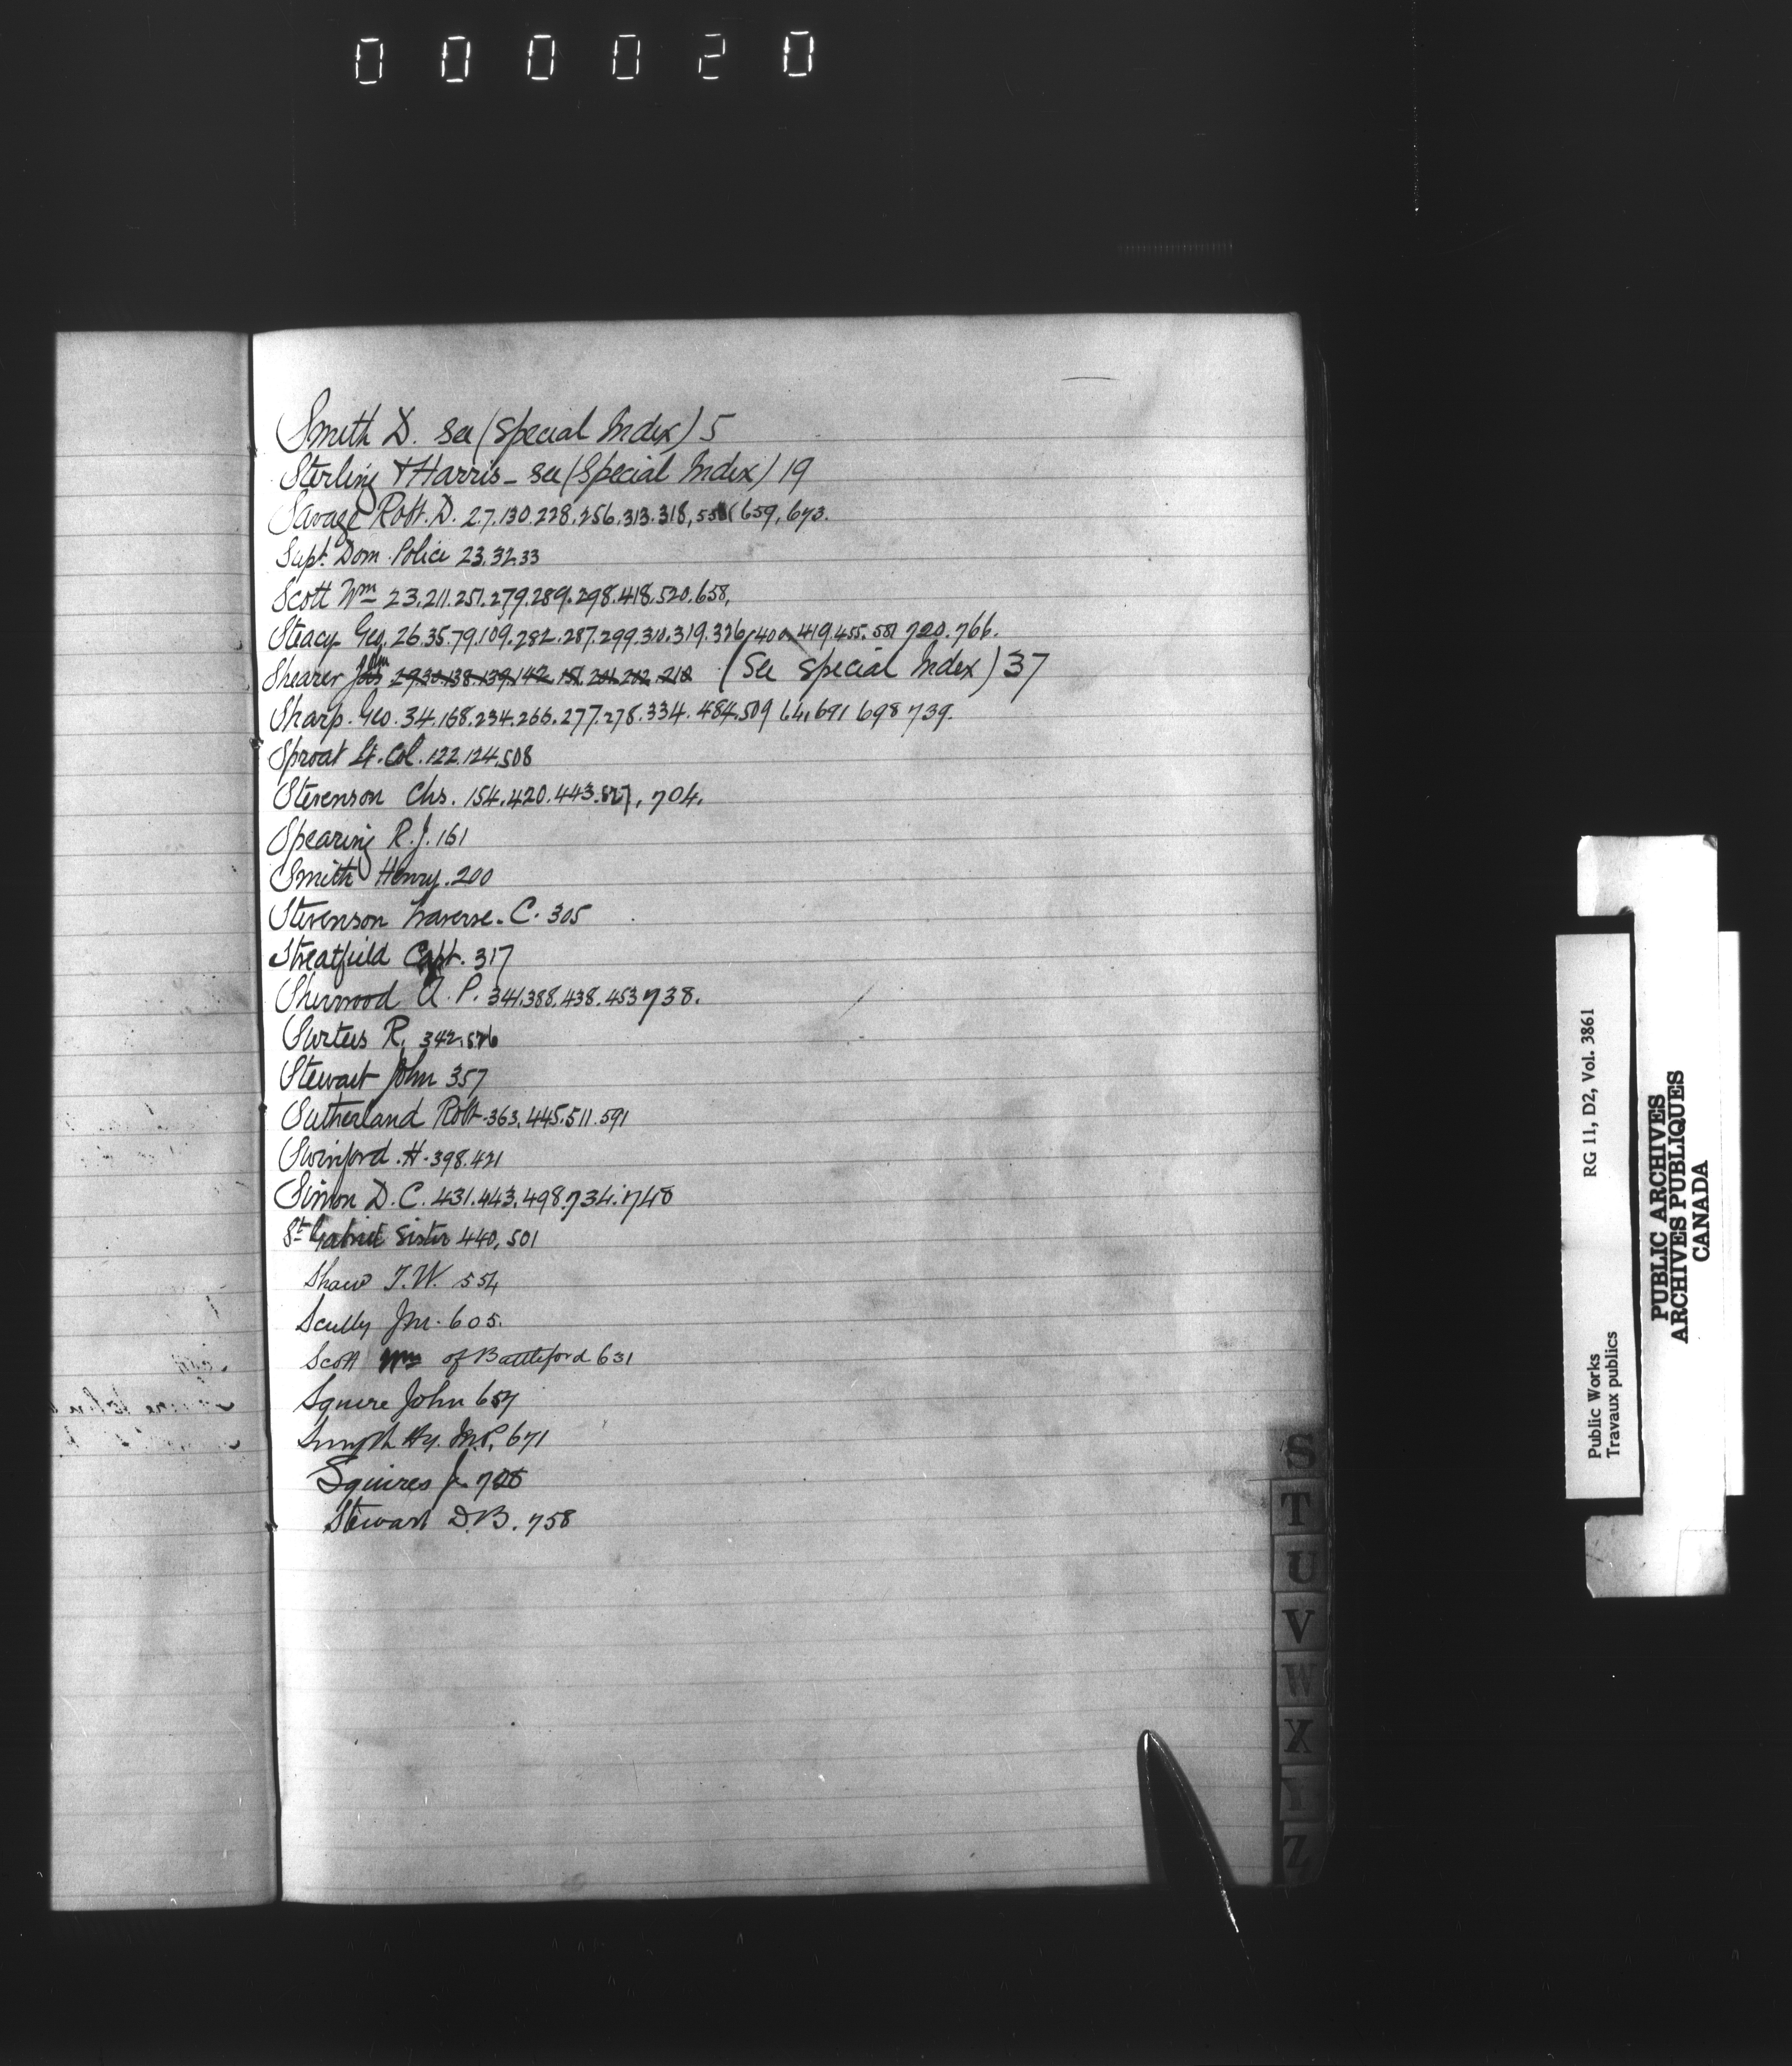 000020
Smith D. see (Special Index) 5
Sterling & Harris - see (Special Index) 19
Savage Robt. D. 27.130.228.256.313.318, 659, 673.
Supt. Dom. Police 23.32.33
Scott Wm 23.211.251.279.289.298.418.520.658,
Steacy Geo. 26.35.79.109.282.287.299.310.319.326.400.419.455.581 720.766.
Shearer John 29.30.138.139.142.151.201.202.210 (See Special Index) 37
Sharp. Geo. 34.168.234.266.277.278.334.484.509 691 698 739.
Sproat Lt. Col. 122.124.508
Stevenson Chs. 154.420.443. 704.
Spearing R.J. 161
Smith Henry. 200
Stevenson Traverse. C. 305
Streatfield Capt. 317
Sherwood A. P. 341.388.438.453 738.
Surtees R. 342.
Stewart John 357
Sutherland Robt. 363.445.511.591
Swinford. H. 398.421
Simon D. C. 431.443.498.734.740
St Gabriel Sister 440, 501
Shaw T.W. 554
Scully Jm. 605.
Scott Wm of Battleford 631
Squire John 657
Smyth Hy. M.P. 671
Squires J. 728
Stewart D.B. 758
S
T
U
V
W
X
Z
RG 11, D2, Vol. 3861
Public Works
Travaux publics
PUBLIC ARCHIVES
ARCHIVES PUBLIQUES
CANADA